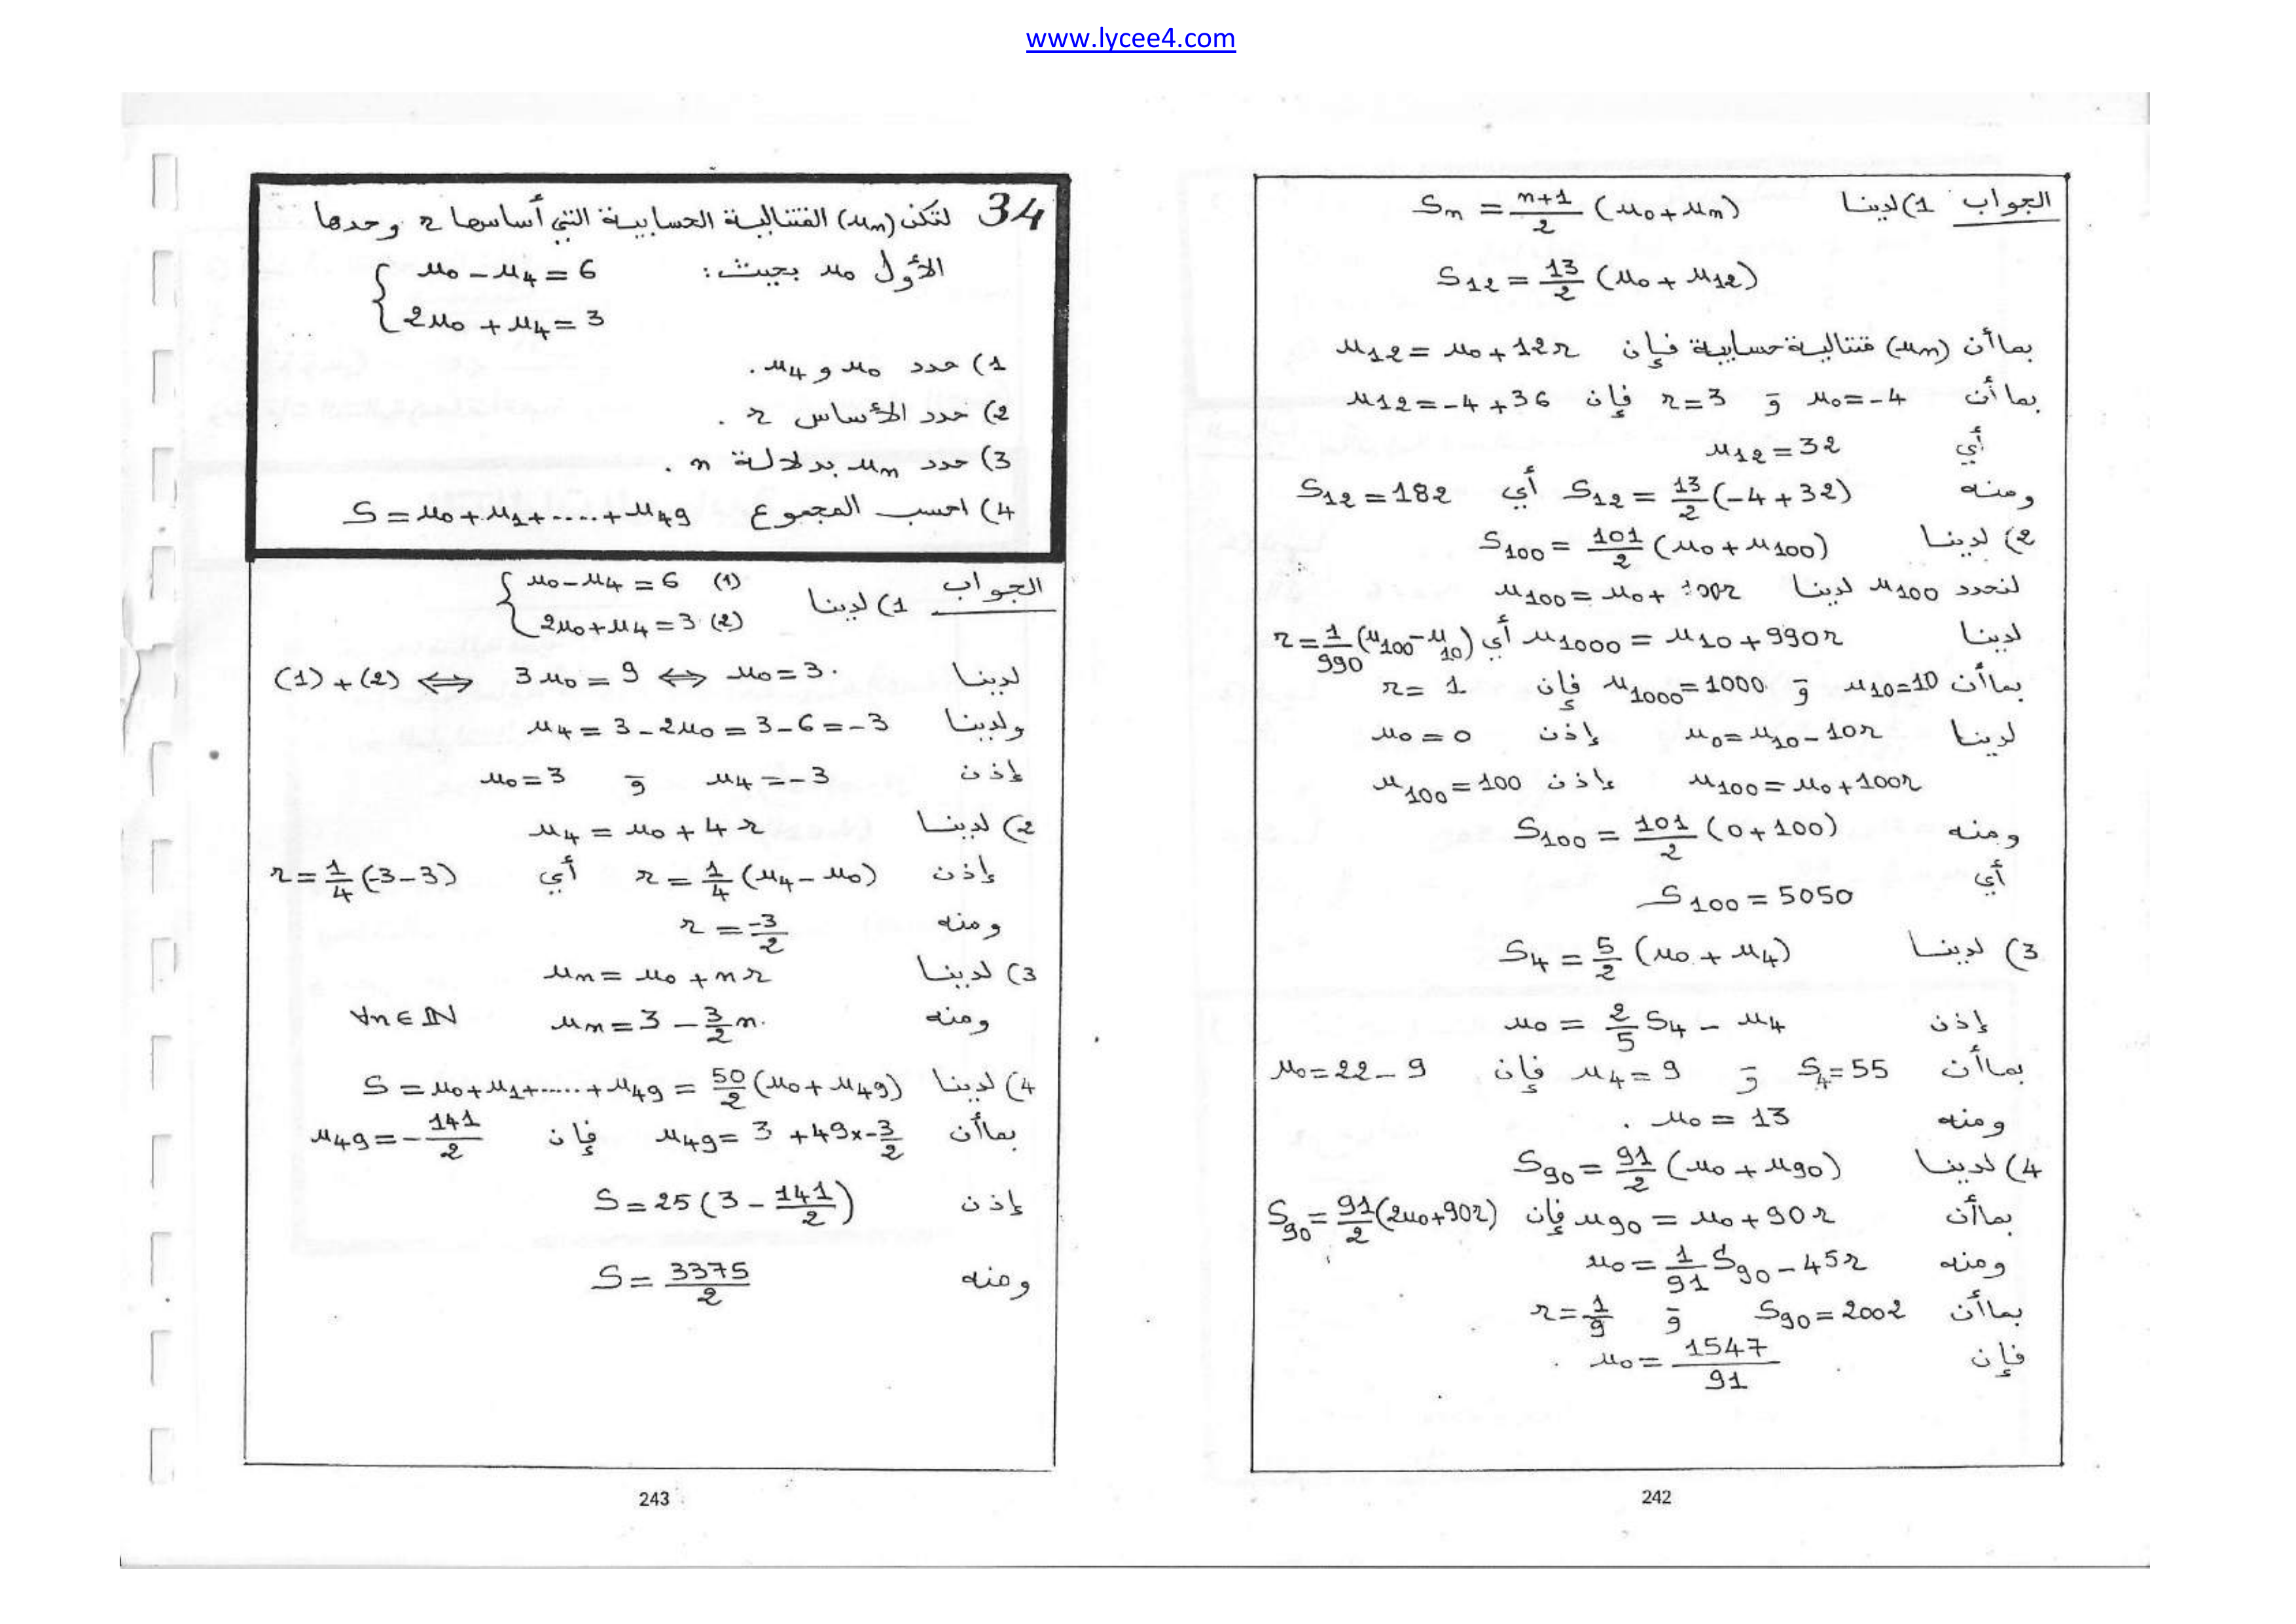 www.lycee4.com
الجواب 1) لدينا Sn = n+1/2 (u0 + un)
S12 = 13/2 (u0 + u12)
بما أن (un) متتالية حسابية فإن u12 = u0 + 12r
بما أن u0 = -4 و r = 3 فإن u12 = -4 + 36
أي u12 = 32
ومنه S12 = 13/2 (-4 + 32) أي S12 = 182
2) لدينا S100 = 101/2 (u0 + u100)
لنحدد u100 لدينا u100 = u0 + 100r
لدينا u1000 = u10 + 990r أي r = 1/990 (u100 - u10)
بما أن u10 = 10 و u1000 = 1000 فإن r = 1
لدينا u0 = u10 - 10r إذن u0 = 0
u100 = u0 + 100r إذن u100 = 100
ومنه S100 = 101/2 (0 + 100)
أي S100 = 5050
3) لدينا S4 = 5/2 (u0 + u4)
إذن u0 = 2/5 S4 - u4
بما أن S4 = 55 و u4 = 9 فإن u0 = 22 - 9
ومنه u0 = 13 .
4) لدينا S90 = 91/2 (u0 + u90)
بما أن u90 = u0 + 90r فإن S90 = 91/2 (2u0 + 90r)
ومنه u0 = 1/91 S90 - 45r
بما أن S90 = 2002 و r = 1/9
فإن u0 = 1547/91 .
242
34 لتكن (un) المتتالية الحسابية التي أساسها r وحدها
الأول u0 بحيث : { u0 - u4 = 6
2u0 + u4 = 3
1) حدد u0 و u4 .
2) حدد الأساس r .
3) حدد un بدلالة n .
4) احسب المجموع S = u0 + u1 + ..... + u49
الجواب 1) لدينا { u0 - u4 = 6 (1)
2u0 + u4 = 3 (2)
لدينا (1) + (2) ⟺ 3u0 = 9 ⟺ u0 = 3.
ولدينا u4 = 3 - 2u0 = 3 - 6 = -3
إذن u4 = -3 و u0 = 3
2) لدينا u4 = u0 + 4r
إذن r = 1/4 (u4 - u0) أي r = 1/4 (-3 - 3)
ومنه r = -3/2
3) لدينا un = u0 + nr
ومنه un = 3 - 3/2 n. ∀n ∈ ℕ
4) لدينا S = u0 + u1 + ...... + u49 = 50/2 (u0 + u49)
بما أن u49 = 3 + 49 x -3/2 فإن u49 = - 141/2
إذن S = 25 (3 - 141/2)
ومنه S = 3375/2
243